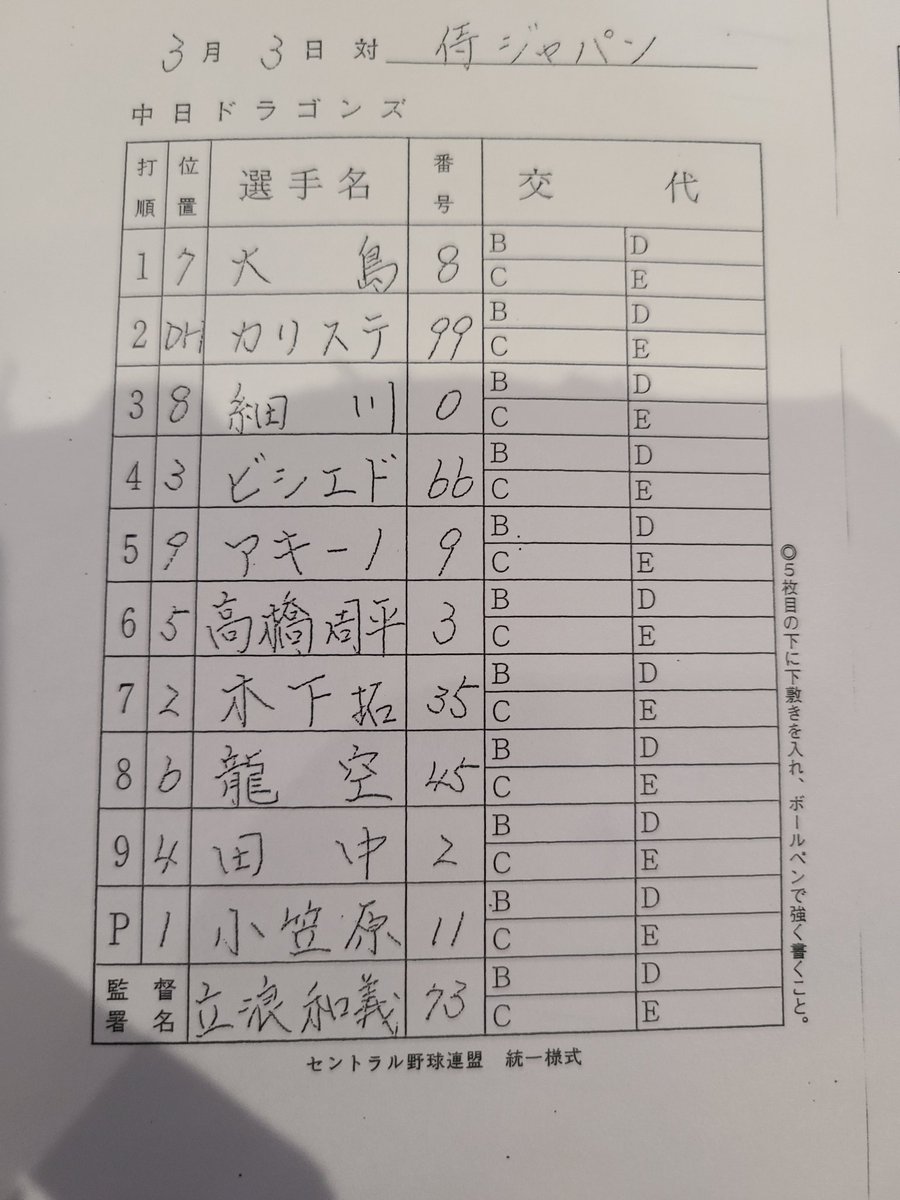 3月 3日 対 侍ジャパン
中日ドラゴンズ
打順 位置 選手名 番号 交代
1 7 大島 8 B D C E
2 DH カリステ 99 B D C E
3 8 細川 0 B D C E
4 3 ビシエド 66 B D C E
5 9 アキーノ 9 B D C E
6 5 高橋周平 3 B D C E
7 2 木下拓 35 B D C E
8 6 龍空 45 B D C E
9 4 田中 2 B D C E
P 1 小笠原 11 B D C E
監督署名 立浪和義 73 B D C E
セントラル野球連盟 統一様式
◎5枚目の下に下敷きを入れ、ボールペンで強く書くこと。